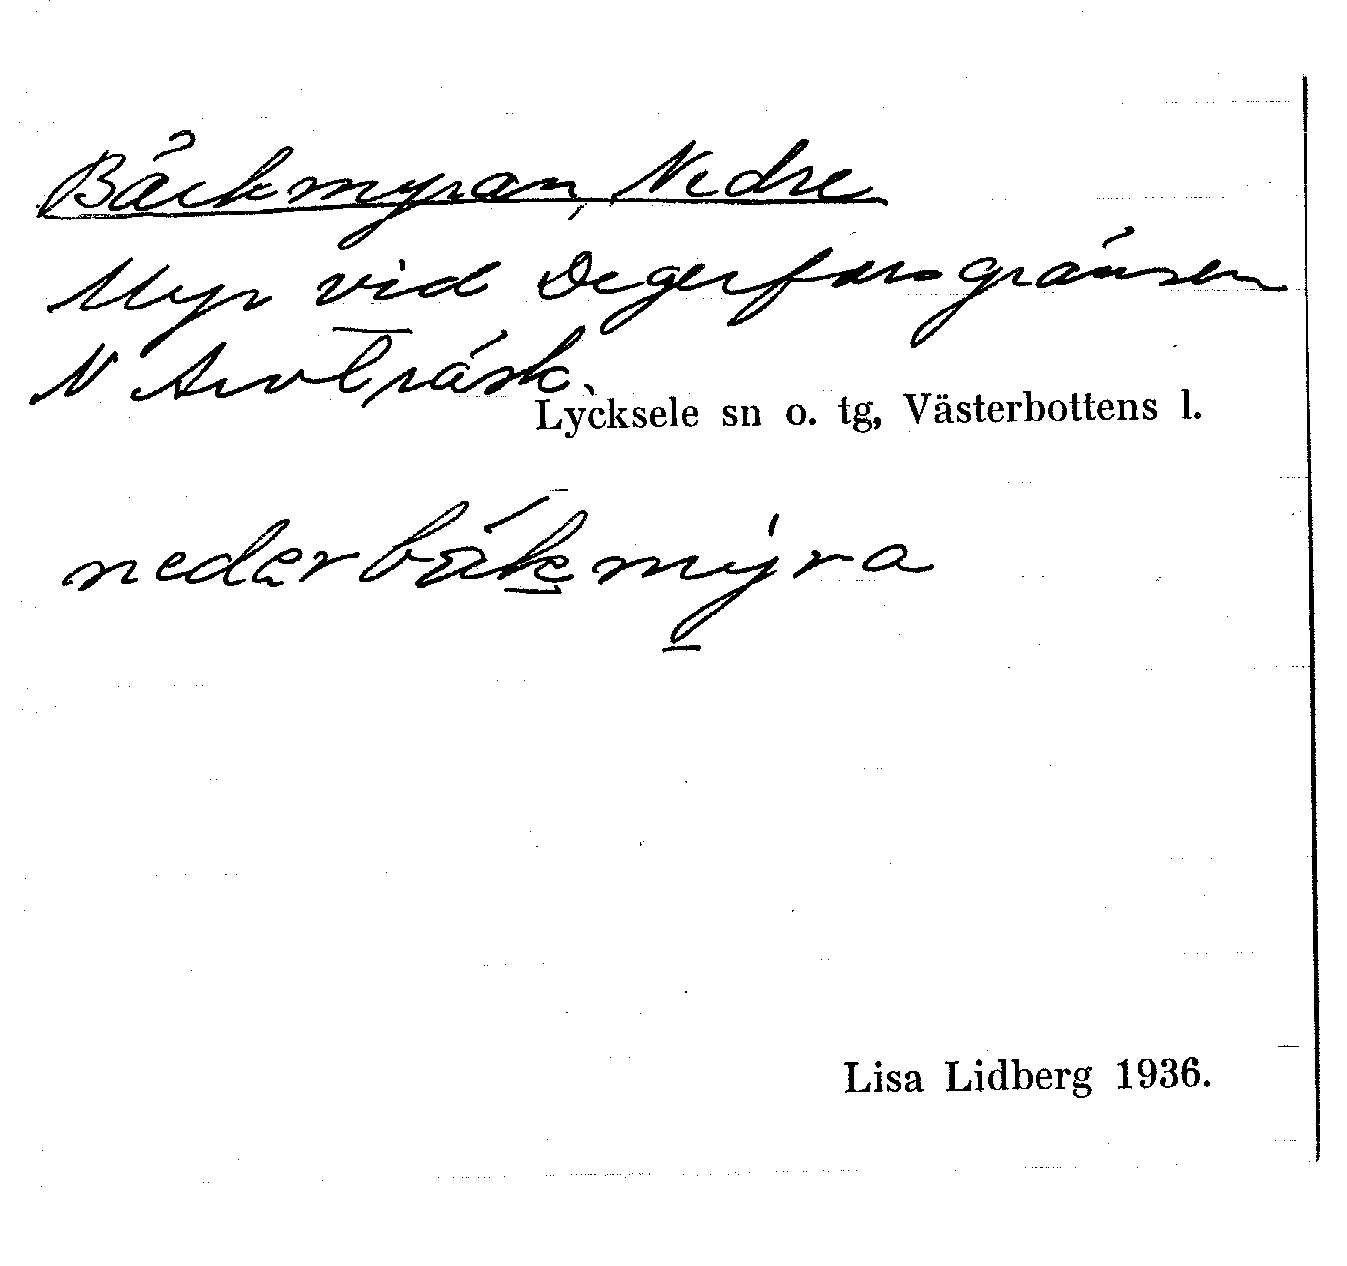 Bäckmyran, Nedre
Myr vid Degerforsgränsen
N Arvträsk.
Lycksele sn o. tg, Västerbottens l.
nedərbäkmýra
Lisa Lidberg 1936.